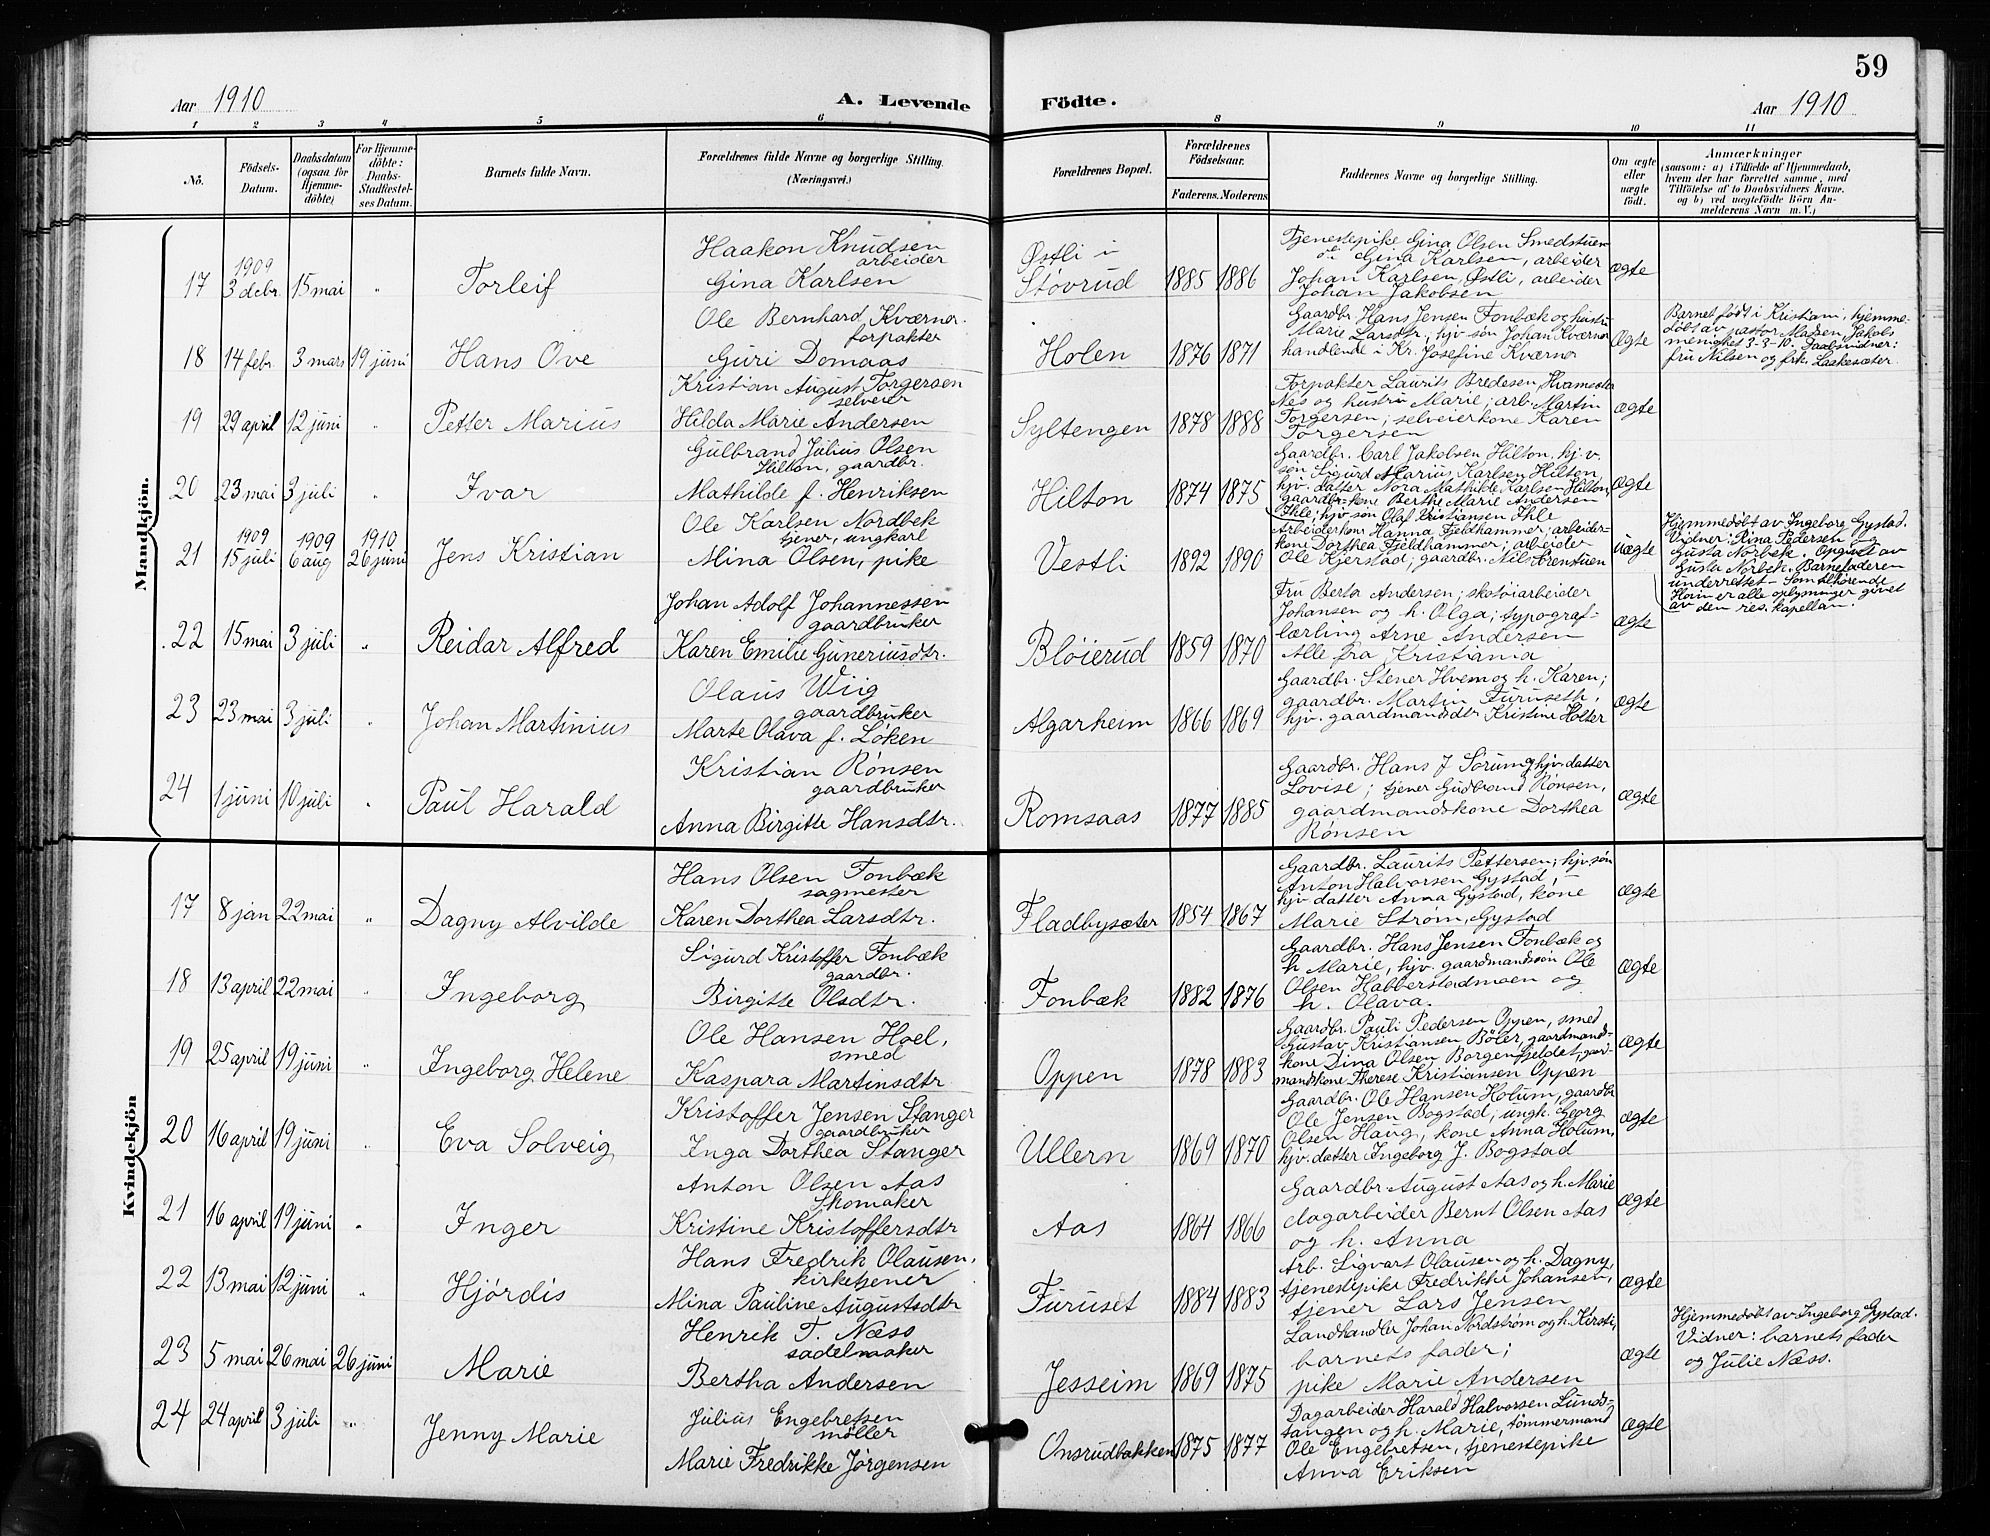 59
Aar 1910
A. Levende Födte.
Aar 1910
1 2 3 4 5 6 8 9 10 11
No.
Födsels-Datum.
Daabsdatum (ogsaa for Hjemme-döbte)
For Hjemme-döbte: Daabs-Stadfæstel-ses Datum.
Barnets fulde Navn.
Forældrenes fulde Navne og borgerlige Stilling.
(Næringsvei.)
Forældrenes Bopæl.
Forældrenes Födselsaar.
Faderens. Moderens
Faddernes Navne og borgerlige Stilling.
Om ægte eller uægte födt.
Anmærkninger
(saasom: a) i Tilfælde af Hjemmedaab,
hvem der har forrettet samme, med
Tilföielse af to Daabsvidners Navne.
og b) ved uægtefödte Börn An-
melderens Navn m. V.)
Mandkjön.
17 1909 3 debr. 15 mai " Torleif
Haakon Knudsen
arbeider
Gina Karlsen
Østli i
Støvrud 1885 1886
Tjenestepike Gina Olsen Smedstuen
Gina Karlsen, arbeider
Johan Karlsen, Østli, arbeider
Johan Jakobsen
ægte
18 14 febr. 3 mars 19 juni Hans Ove
Ole Bernhard Kværner.
forpakter
Guri Domaas
Holen 1876 1871
Gaardbr. Hans Jensen Fonbæk og hustru
Marie Larsdtr., hjv. søn Johan Kværner
handlende i Kr. Josefine Kværner
Ægte
Barnet født i Kristiania, hjemme-
døbt av pastor Madsen, Jakobs
menighet 3-3-10. Daabsvidner:
fru Nilsen og frk. Laakesæter.
19 29 april 12 juni " Petter Marius
Kristian August Torgersen
selveier
Hilda Marie Andersen
Syltengen 1878 1888
Forpakter Laurits Bredesen, Hvamsetra
Nes og hustru Marie; arb. Martin
Torgersen; selveierkone Karen
Torgersen
ægte
20 23 mai 3 juli " Ivar
Gulbrand Julius Olsen
Hilton, gaardbr.
Mathilde f. Henriksen
Hilton 1874 1875
Gaardbr. Carl Jakobsen Hilton, hj.v.
søn Sigurd Marius Karlsen Hilton,
hjv. datter Nora Mathilde Karlsen Hilton,
gaardbr-kone Berthe Marie Andersen
Ihle, hjv. søn Olaf Kristiansen Ihle
ægte
21 1909 15 juli 1909 6 aug 1910 26 juni Jens Kristian
Ole Karlsen Nordbek
tjener, ungkarl
Mina Olsen, pike
Vestli 1892 1890
Arbeiderkone Hanna Fjeldhammer; arbeider-
kone Dorthea Fjeldhammer; arbeider
Ole Kjerstad; gaardbr. Nils Brenstuen
uægte
Hjemmedøbt av Ingeborg Gystad.
Vidner: Rina Pedersen og
Gusta Norbek. Opgivet av
Gusta Norbek. Barnefaderen
underrettet –
Hovin er alle oplysninger givet
av den res. kapellan.
22 15 mai 3 juli " Reidar Alfred
Johan Adolf Johannessen
gaardbruker
Karen Emilie Guneriusdtr.
Bløierud 1859 1870
Fru Berta Andersen; skotøiarbeider
Johansen og h. Olga; typograf-
lærling Arne Andersen
Alle fra Kristiania
ægte
23 23 mai 3 juli " Johan Martinius
Olaus Wiig
gaardbruker
Marte Olava f. Løken
Algarheim 1866 1869
Gaardbr. Stener Hvem og h. Karen;
gaardbr. Martin Furuseth,
hjv. gaardmandsdtr. Kristine Holter
ægte
24 1 juni 10 juli " Paul Harald
Kristian Rønsen
gaardbruker
Anna Birgitte Hansdtr.
Romsaas 1877 1885
Gaardbr. Hans J Sørum, hjv. datter
Lovise; tjener Gudbrand Rønsen,
gaardmandskone Dorthea
Rønsen
ægte
Kvindekjön
17 8 jan 22 mai " Dagny Alvilde
Hans Olsen Fonbæk
sagmester
Karen Dorthea Larsdtr.
Fladbysæter 1854 1867
Gaardbr. Laurits Pettersen; hjv. søn
Anton Halvorsen Gystad;
hjv datter Anna Gystad, kone
Marie Strøm, Gystad
ægte
18 13 april 22 mai " Ingeborg
Sigurd Kristoffer Fonbæk
gaardbr.
Birgitte Olsdtr.
Fonbæk 1882 1876
Gaardbr. Hans Jensen Fonbæk og
h Marie, hjv. gaardmandssøn Ole
Olsen Habberstadmoen og
h. Olava.
ægte
19 25 april 19 juni " Ingeborg Helene
Ole Hansen Hoel,
smed
Kaspara Martinsdtr
Oppen 1878 1883
Gaardbr. Pauli Pedersen Oppen, smed
Gustav Kristiansen Böler, gaardmands-
kone Dina Olsen Borgenfjeldet, gaard-
mandskone Therese Kristiansen Oppen
ægte
20 16 april 19 juni " Eva Solveig
Kristoffer Jensen Stanger
gaardbruker
Inga Dorthea Stanger
Ullern 1869 1870
Gaardbr. Ole Hansen Holum, gaardbr
Ole Jensen Bogstad; ungk. Georg
Olsen Haug, kone Anna Holum,
hjv. datter Ingeborg J. Bogstad
ægte
21 16 april 19 juni " Inger
Anton Olsen Aas
Skomaker
Kristine Kristoffersdtr
Aas 1864 1866
Gaardbr August Aas og h. Marie
dagarbeider Bernt Olsen Aas
og h. Anna
ægte
22 13 mai 12 juni " Hjørdis
Hans Fredrik Olausen,
kirketjener
Mina Pauline Augustsdtr
Furuset 1884 1883
Arb. Sigvart Olausen og h. Dagny,
tjenestepike Fredrikke Johansen,
tjener Lars Jensen
ægte
23 5 mai 26 mai 26 juni Marie
Henrik T. Næss
sadelmaker
Bertha Andersen
Jesseim 1869 1875
Landhandler Johan Nordstrøm og h. Kirsti,
barnets fader;
pike Marie Andersen
ægte
Hjemmedøbt av Ingeborg Gystad.
Vidner: barnets fader
og Julie Næss.
24 24 april 3 juli " Jenny Marie
Julius Engebretsen
møller
Marie Fredrikke Jørgensen
Onsrudbakken 1875 1877
Dagarbeider Harald Halvorsen Lunds-
tangen og h. Marie, tømmermand
Ole Engebretsen, tjenestepike
Anna Eriksen
ægte